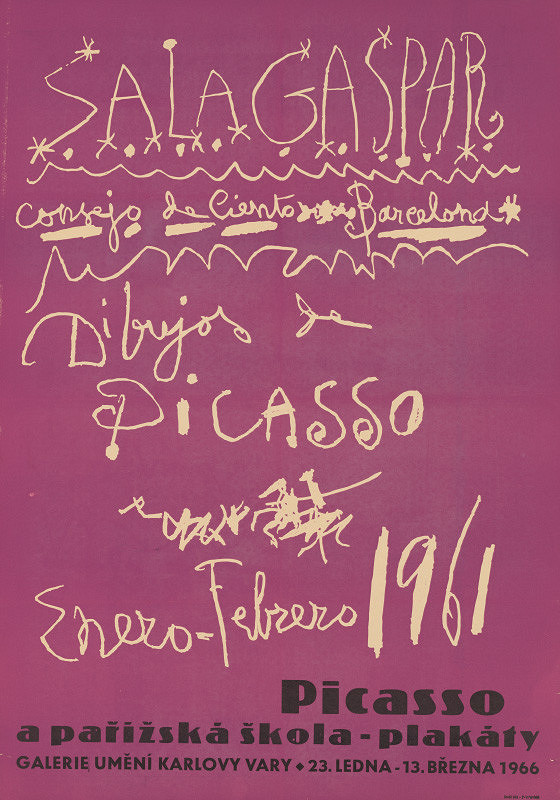 SALA GASPAR
Consejo de Ciento Barcelona
Dibujos de
PICASSO
Enero-Febrero 1961
Picasso
a pařížská škola - plakáty
GALERIE UMĚNÍ KARLOVY VARY ◆ 23. LEDNA - 13. BŘEZNA 1966